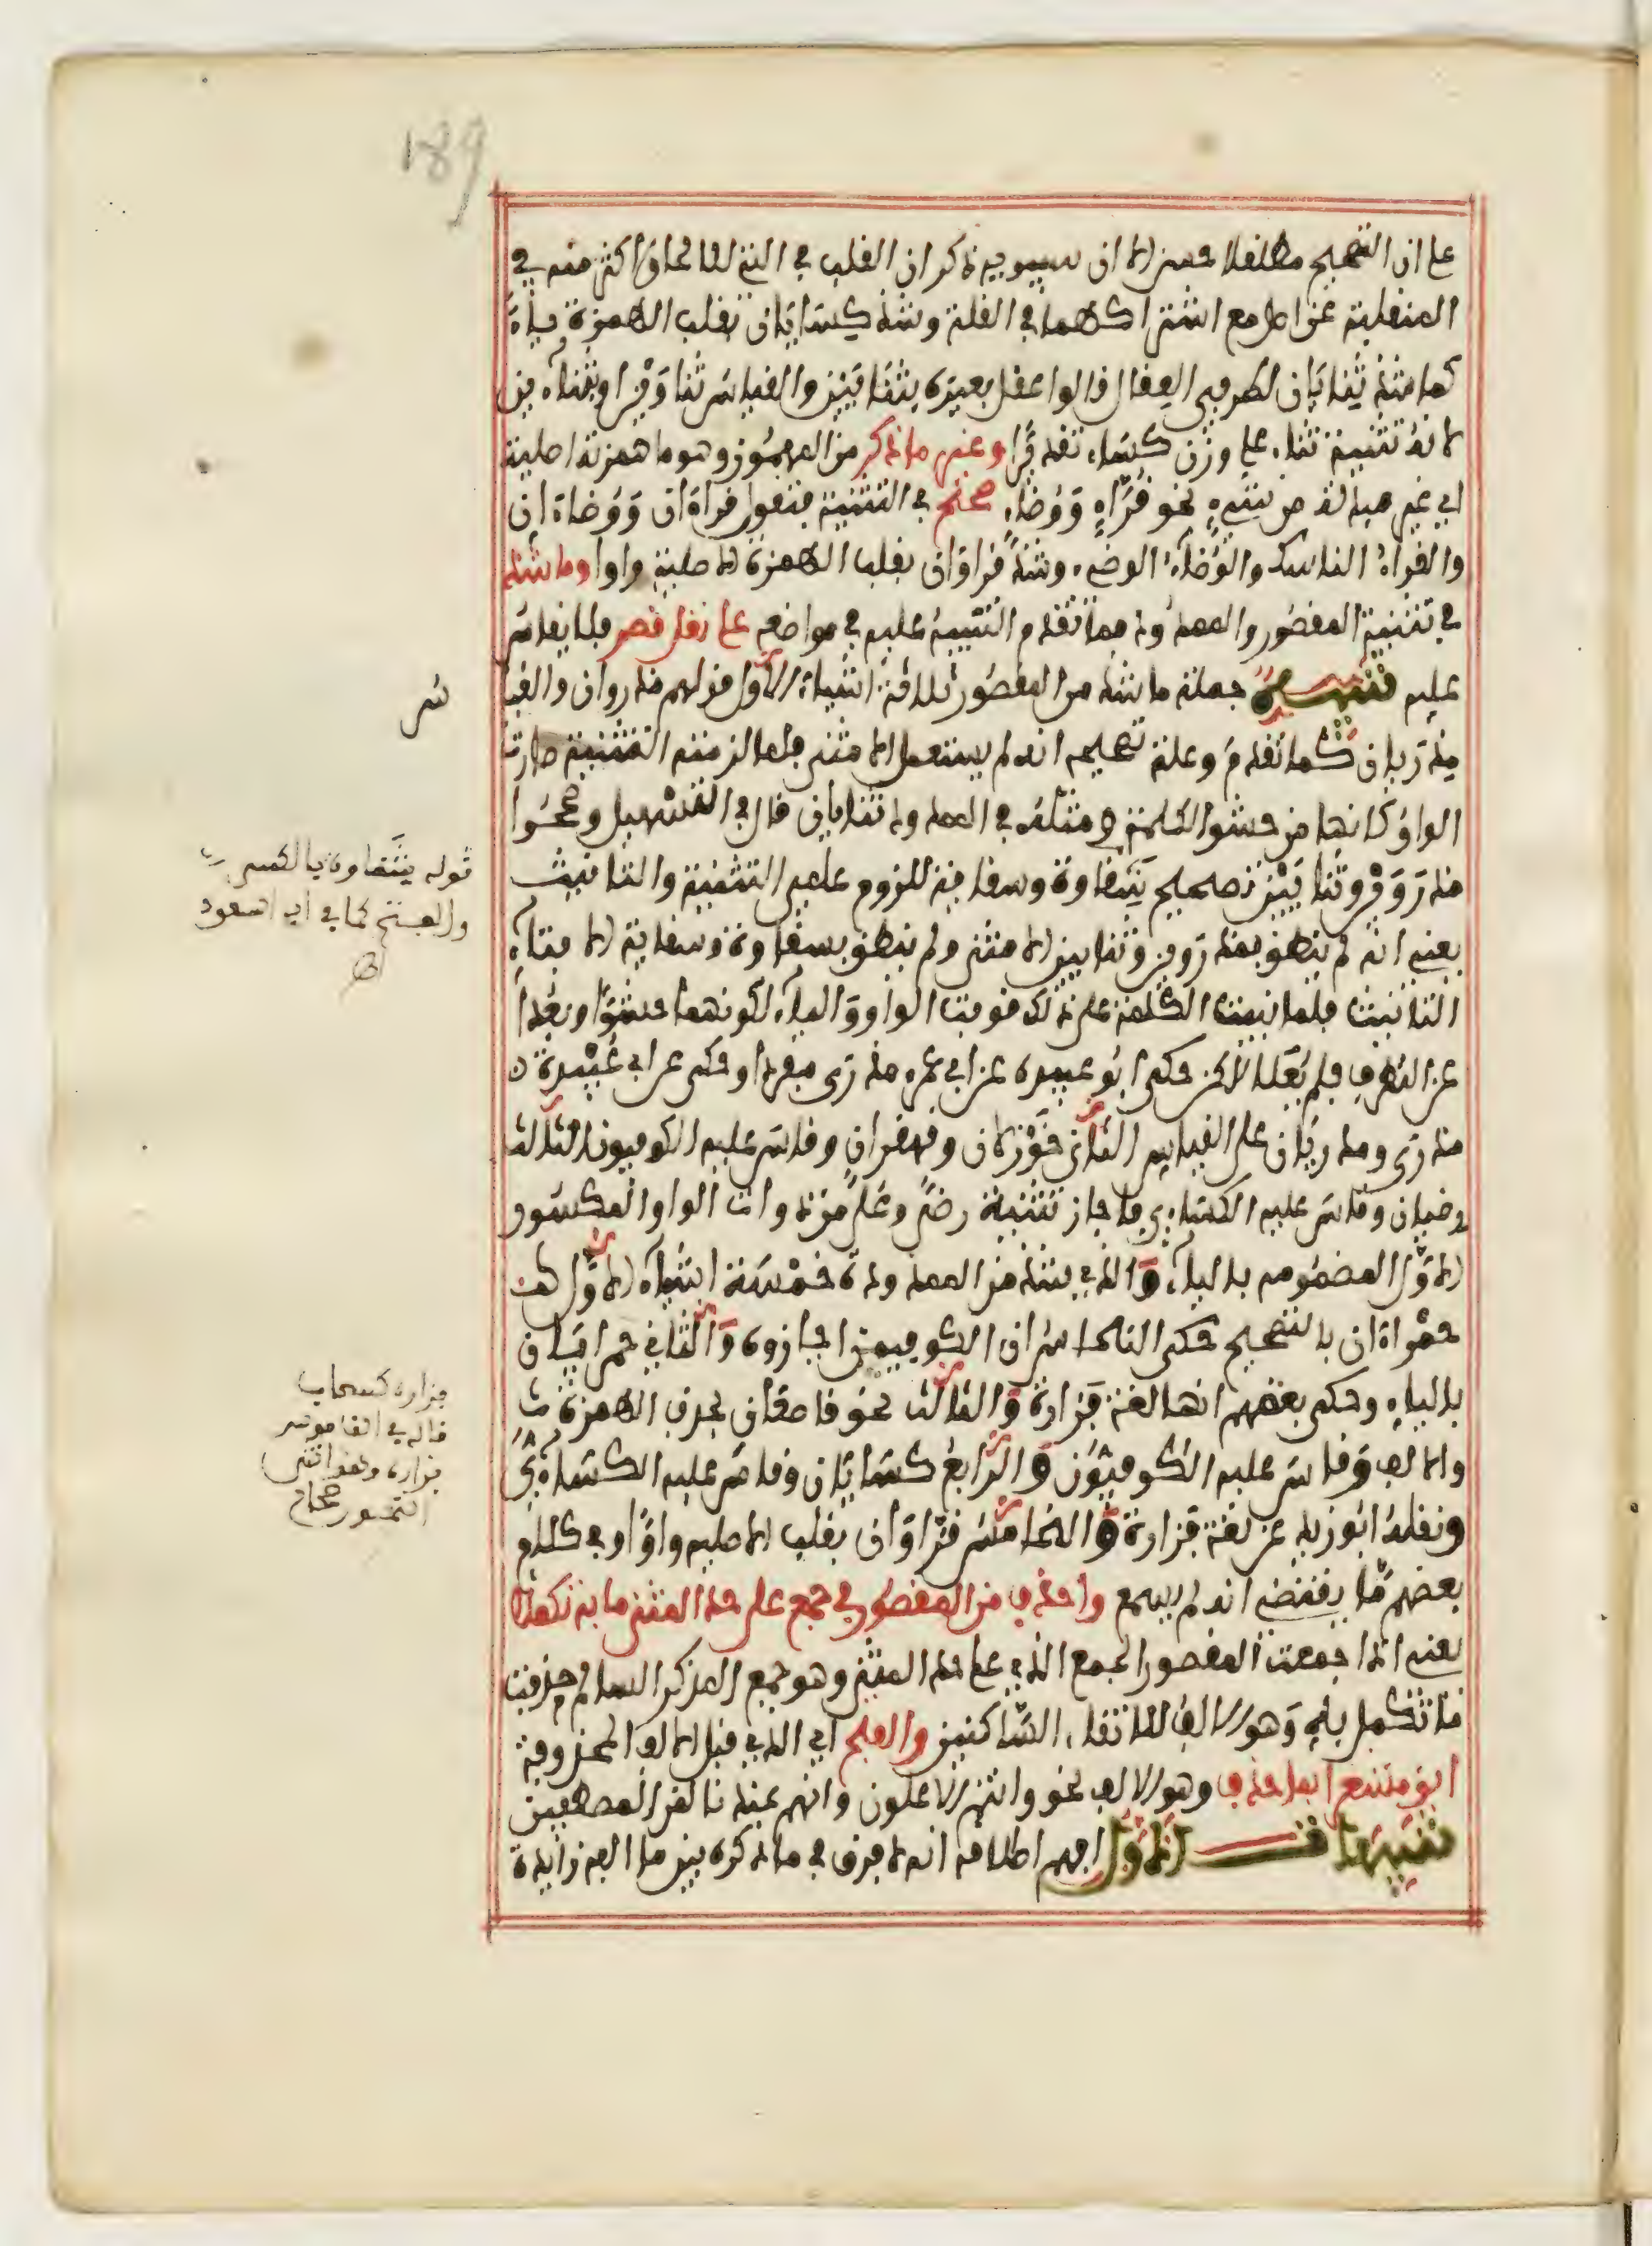 189
على ان التصحيح مطلقا احسن الا ان سيبويه ذكر ان القلب في التي للالحاق اكثر منه في
المنقلبة عن اصل مع اشتراكهما في القلة وشذ كسايان بقلب الهمزة ياء
كما شذ ثنايان لطرفي العقال قالوا عقل بعيره بثنايين والقياس ثناوين او بثناءين
لانه تثنية ثناء على وزن كساء تقديرا وغير ما ذكر من المهموز وهو ما همزته اصلية
اي غير مبدلة من شيء نحو قراء ووضاء صحح في التثنية فتقول قراءان ووضاءان
والقراء الناسك والوضاء الوضيء وشذ قراوان بقلب الهمزة الاصلية واوا وما شذ
في تثنية المقصور والممدود مما تقدم التنبيه عليه في مواضعه على نقل قصر فلا يقاس
عليه تنبيه جملة ما شذ من المقصور ثلاثة اشياء الاول قولهم مذروان والقيا
س
مذريان كما تقدم وعلة تصحيحه انه لم يستعمل الا مثنى فلما لزمته التثنية صارت
الواو كانها من حشو الكلمة ومثله في الممدود ثنايان قال في التسهيل وصححوا
مذروين وثنايين تصحيح شقاوة وسقاية للزوم علمي التثنية والتانيث
يعني انه لم ينطق بمذروين وثنايين الا مثنى ولم ينطق بشقاوة وسقاية الا بتاء
التانيث فلما بنيت الكلمة على ذلك قويت الواو والياء لكونهما حشوا وبعدا
عن الطرف فلم يعلا لكن حكى ابو عبيدة عن ابي عمرو مذرى مفردا وحكى عن ابي عبيدة
مذرى ومذريان على القياس الثاني خوزلان وقهقران وقاس عليه الكوفيون الثالث
رضيان وقاس عليه الكساءي فاجاز تثنية رضى وعلى من ذوات الواو المكسور
الاول المضموم بالياء والذي شذ من الممدود خمسة اشياء الاول
حمراءان بالتصحيح حكى النحاس ان الكوفيين اجازوه والثاني حمرايان
بالياء وحكى بعضهم انها لغة فزارة والثالث نحو قاصعان بحذف الهمزة
والالف وقاس عليه الكوفيون والرابع كسايان وقاس عليه الكساءي
ونقله ابو زيد عن لغة فزارة والخامس قراوان بقلب الاصلية واوا وفي كلام
بعضهم ما يقتضي انه لم يسمع واحذف من المقصور في جمع على حد المثنى ما به تكملا
يعني اذا جمعت المقصور الجمع الذي على حد المثنى وهو جمع المذكر السالم حذفت
ما تكمل به وهو الالف لالتقاء الساكنين والفتح اي الذي قبل الالف المحذوفة
ابق مشعرا بما حذف وهو الالف نحو وانتم الاعلون وانهم عندنا لمن المصطفين
تنبيهات الاول افهم اطلاقه انه لا فرق في ما ذكره بين ما الفه زايدة
قوله شقاوة بالكسر
والفتح كما في ابي السعود
اهـ
فزارة كسحاب
قاله في القاموس
فزارة وهو انثى
النمور صحاح